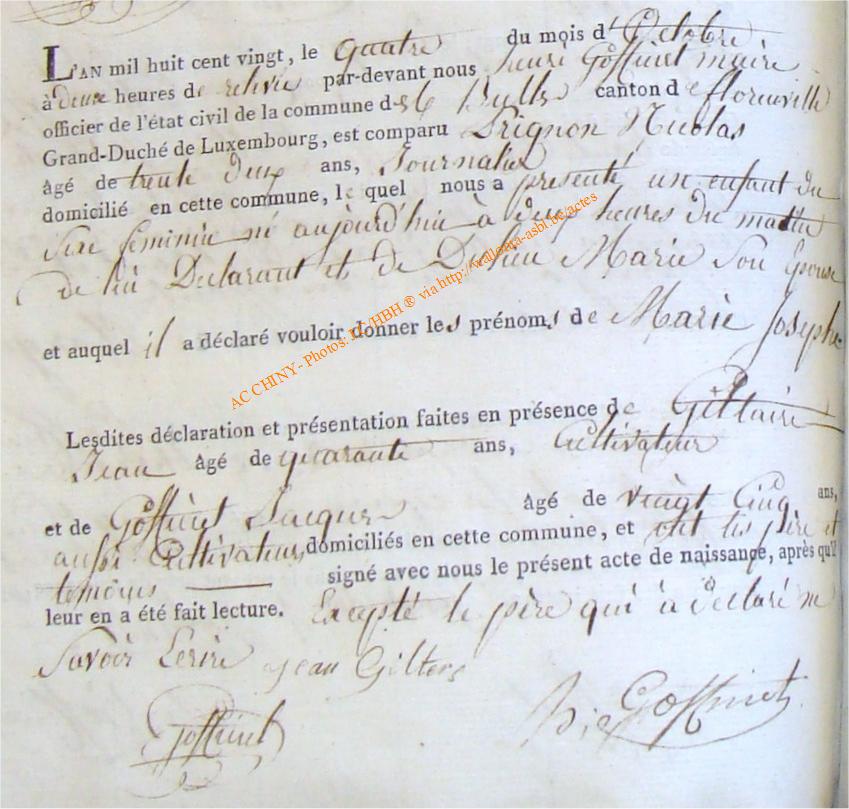 L'AN mil huit cent vingt, le quatre du mois d'Octobre
à deux heures de relevée par-devant nous henri Goffinet maire
officier de l'état civil de la commune des Bulles canton de florenville
Grand-Duché de Luxembourg, est comparu Prignon Nicolas
âgé de trente deux ans, Journalier
domicilié en cette commune, le quel nous a présenté un enfant du
Sexe feminin né aujourd'hui à deux heures du matin
de lui Declarant et de Marie Son Epouse
et auquel il a déclaré vouloir donner les prénoms de Marie Josephe
AC CHINY - Photos: /HBH ® via http://wallonia-asbl.be/actes
Lesdites déclaration et présentation faites en présence de
Jean âgé de quarante ans, Cultivateur
et de Goffinet Jacques âgé de vingt Cinq ans,
aussi Cultivateurs domiciliés en cette commune, et ont les père et
temoins signé avec nous le présent acte de naissance, après qu'il
leur en a été fait lecture. Excepté le père qui a declaré ne
Savoir Ecrire jean
Goffinet Goffinet